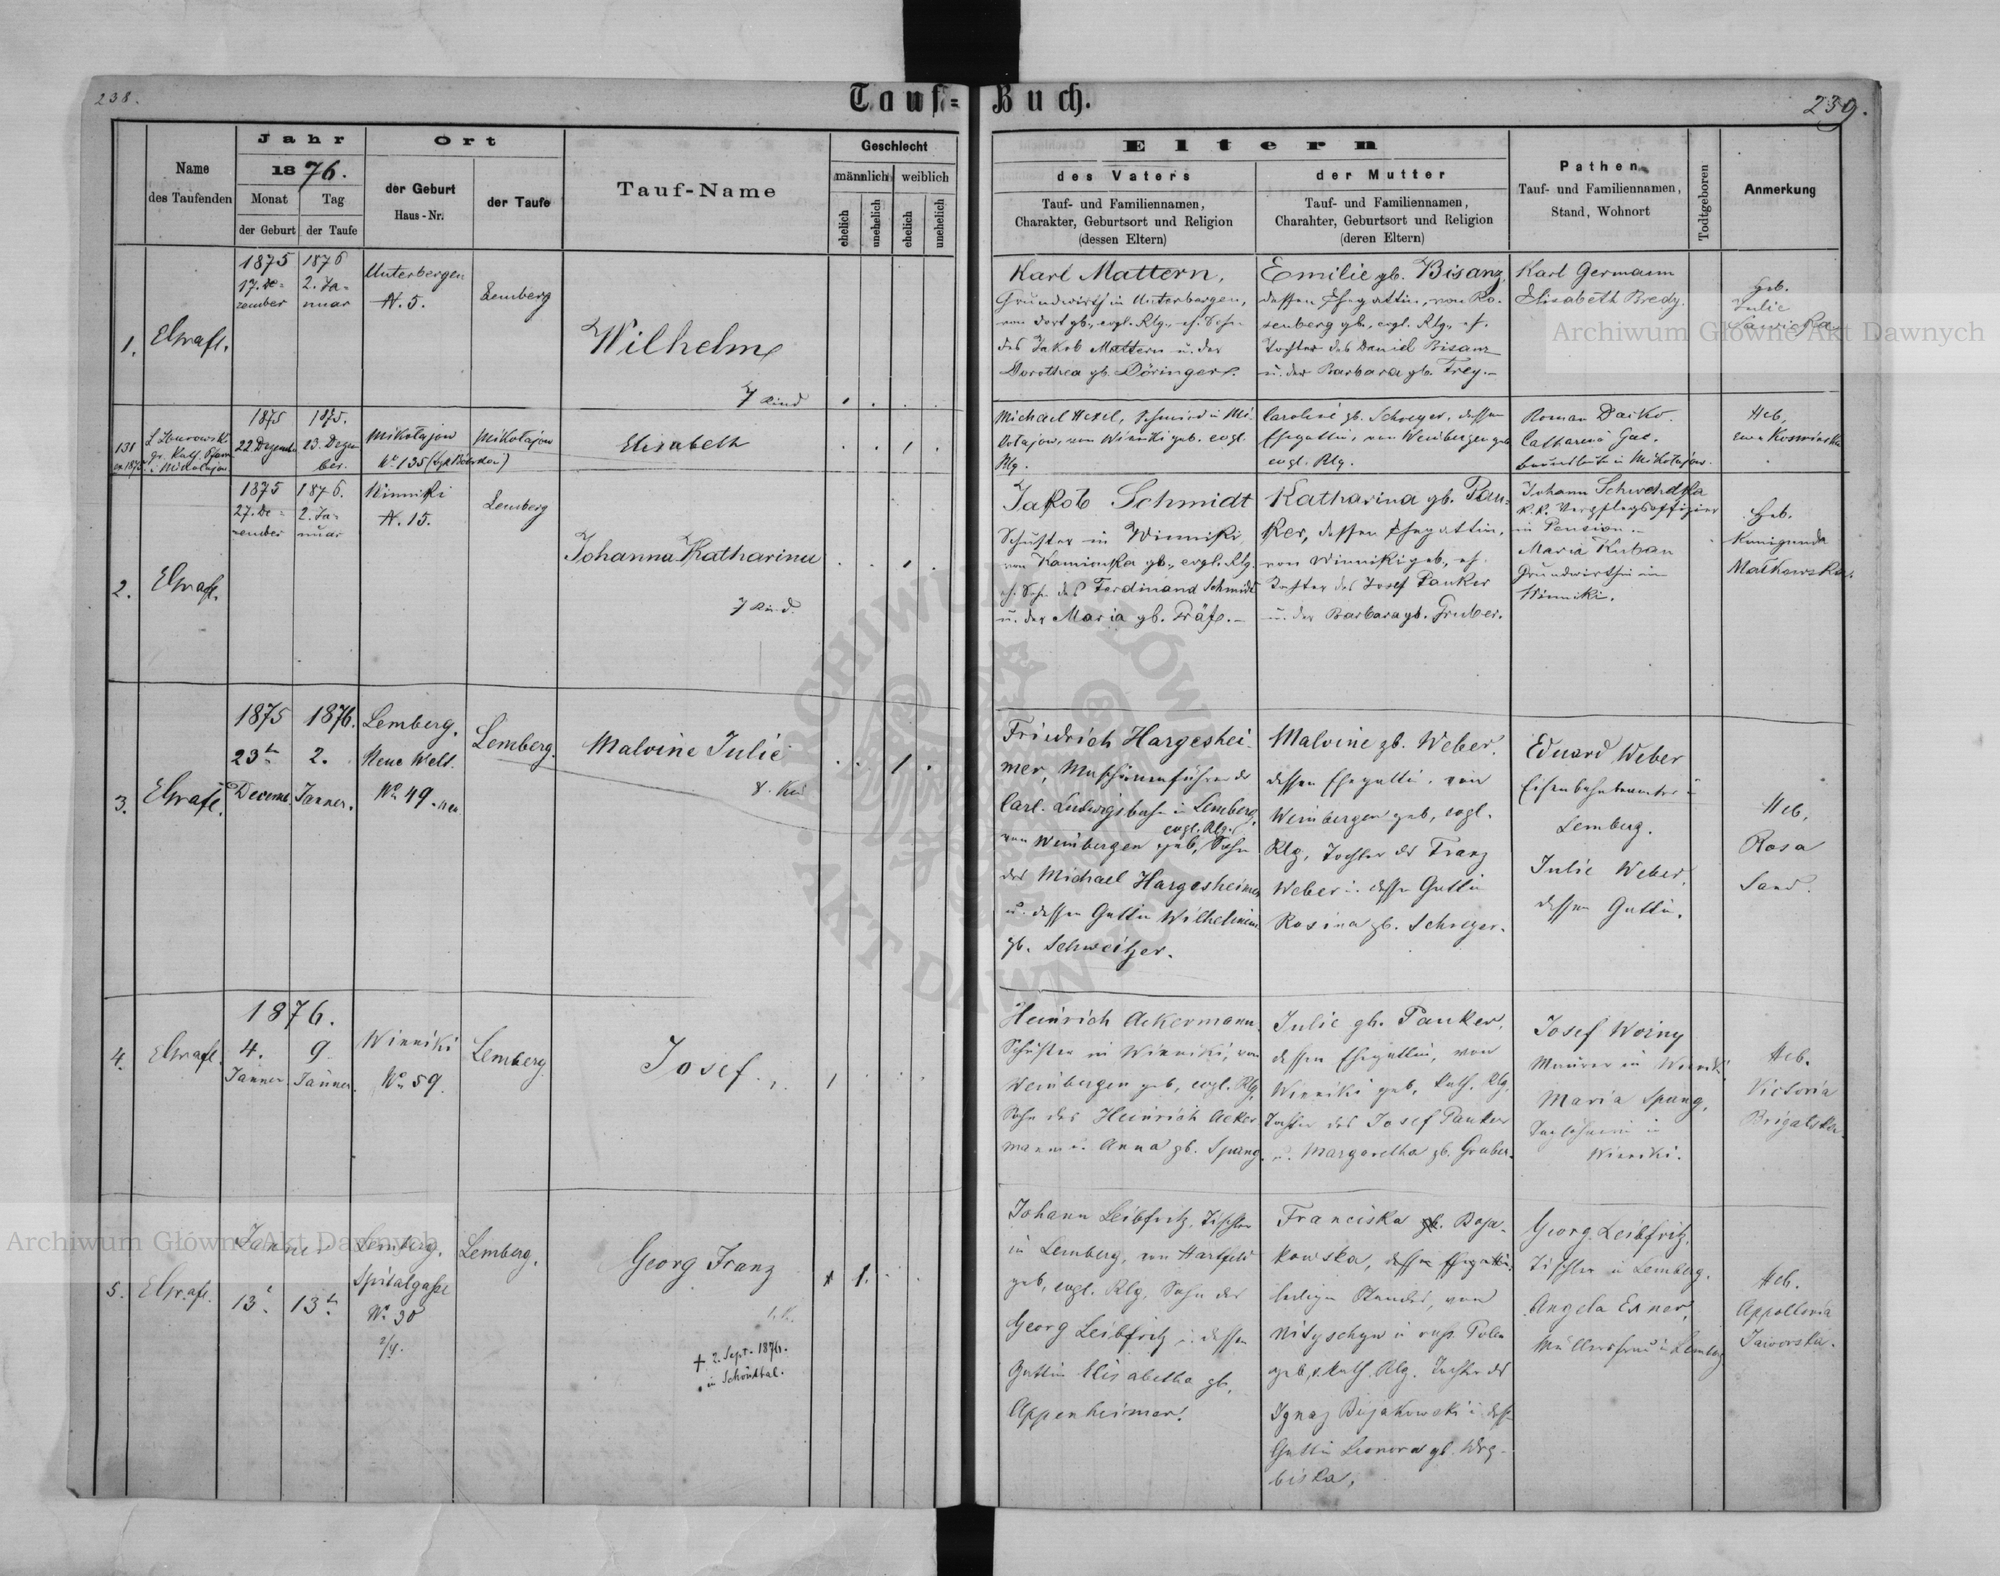 238.
Tauf-Buch.
239.
Name
des Taufenden
Jahr
1876.
Monat
Tag
der Geburt
der Taufe
Ort
der Geburt
Haus-Nr.
der Taufe
Tauf-Name
Geschlecht
männlich
weiblich
ehelich
unehelich
ehelich
unehelich
Eltern
des Vaters
Tauf- und Familiennamen,
Charakter, Geburtsort und Religion
(dessen Eltern)
der Mutter
Tauf- und Familiennamen,
Charahter, Geburtsort und Religion
(deren Eltern)
Pathen
Tauf- und Familiennamen,
Stand, Wohnort
Todtgeboren
Anmerkung
1.
1875
17. De-
zember
1876
2. Ja-
nuar
Unterbergen
N. 5.
Lemberg
Wilhelm
7 Kind
Karl Mattern,
Grundwirth in Unterbergen,
von dort gb., evgl. Rlg., eh. Sohn
des Jakob Mattern u. der
Dorothea gb. Döringer.
Emilie gb. Bisanz,
dessen Ehegattin, von Ro-
senberg gb., evgl. Rlg., eh.
Tochter des Daniel Bisanz
u. der Barbara gb. Frey.-
Karl Germann
Elisabeth Bredy.
Heb.
Julie
131
ex 1875
gr. kath. Pfarr
in Mikołajow
1875
22 Dezember
1875.
23. Dezem
ber.
Mikołajow
No 135
Mikołajow
Elisabeth
Michael Hexel, Schmied in Mi-
kołajow, von Winniki geb. evgl.
Rlg.
Caroline gb. Schreyer, dessen
Ehegattin, von Weinbergen geb
evgl. Rlg.
Roman Dacko.
Catharina Gac.
in Mikołajow.
Heb.
2.
1875
27. De-
zember
1876.
2. Ja-
nuar
Winniki
N. 15.
Lemberg
Johanna Katharina
7 Kind.
Jakob Schmidt
Schuster in Winniki,
von Kamionka gb., evgl. Rlg.
eh. Sohn des Ferdinand Schmidt
u. der Maria gb. Präfe.-
Katharina gb. Pau-
ker, dessen Ehegattin,
von Winniki geb., eh.
Tochter des Josef Pauker
u. der Barbara gb. Gruber.
Johann Schwehdka
k. k. Verpflegsoffizier
in Pension.-
Maria Kuhan
Grundwirthin in
Winniki.
Heb.
Kunigunda
Maikowska.
3.
1875
23t
Decemb.
1876.
2.
Jänner.
Lemberg.
Neue Welt.
No 49. neu
Lemberg.
Malvine Julie
8. Kd
Friedrich Hargeshei-
mer, Maschinenführer der
Carl. Ludwigsbahn in Lemberg,
evgl. Rlg.
von Weinbergen geb., Sohn
des Michael Hargesheimer
u. dessen Gattin Wilhelmine
gb. Schweitzer.
Malvine gb. Weber.
dessen Ehegattin, von
Weinbergen geb, evgl.
Rlg, Tochter des Franz
Weber u. dessen Gattin
Rosina gb. Schreyer.
Eduard Weber
Eisenbahnbeamter in
Lemberg.
Julie Weber,
dessen Gattin.
Heb,
Rosa
Sand.
4.
1876.
4.
Jänner
9
Jänner.
Winniki
No 59.
Lemberg
Josef.
Heinrich Ackermann,
Schuster in Winniki, von
Weinbergen geb, evgl. Rlg,
Sohn des Heinrich Acker
mann u. Anna gb. Spang.
Julie gb. Pauker,
dessen Ehegattin, von
Winniki geb, kath. Rlg,
Tochter des Josef Pauker
u. Margaretha gb. Gruber.
Josef Woiny
Maurer in Winniki,
Maria Spang,
Taglöhnerin in
Winniki.
Heb.
Victoria
Brigalska.
5.
Jänner
13t
13t
Lemberg.
Spitalgasse
No 30
2/4.
Lemberg.
Georg Franz
1. K.
† 2. Sept. 1876.
in Schönthal.
Johann Leibfritz, Tischler
in Lemberg, von Hartfeld
geb, evgl. Rlg, Sohn des
Georg Leibfritz u. dessen
Gattin Elisabetha gb.
Appenheimer.
Franciska gb. Boja-
kowska, dessen Ehegattin,
ledigen Standes, von
in russ. Polen
geb, r. kath. Rlg. Tochter des
Ignaz Bojakowski u. dess
Gattin Leonora gb. Wrg-
biska.
Georg Leibfritz,
Tischler in Lemberg.
Angela Exner,
Müllersfrau in Lemberg
Heb.
Appollonia
Jaworska.
Archiwum Główne Akt Dawnych
Archiwum Główne Akt Dawnych
ARCHIWUM GŁÓWNE
AKT DAWNYCH